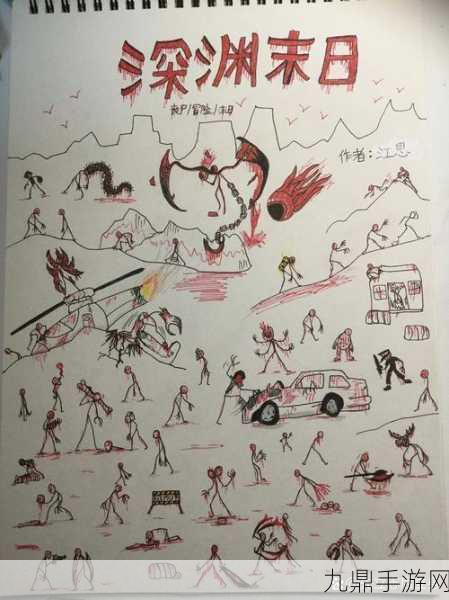 深渊末日
丧尸/冒险/末日
作者:江恩
九鼎手游网